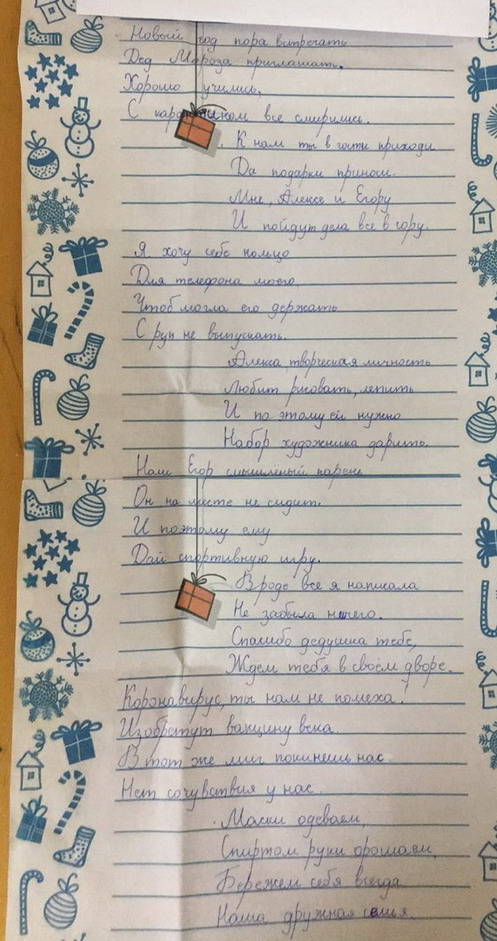 Новый год пора встречать
Дед Мороза приглашать.
Хорошо учились,
С карантином все смирились.
К нам ты в гости приходи
Да подарки приноси.
Мне, Алексе и Егору
И пойдут дела все в гору.
Я хочу себе кольцо
Для телефона моего,
Чтоб могла его держать
С рук не выпускать.
Алекса творческая личность
Любит рисовать, лепить
И по этому ей нужно
Набор художника дарить.
Наш Егор смышлёный парень
Он на месте не сидит.
И поэтому ему
Дай спортивную игру.
Вроде все я написала
Не забыла ничего.
Спасибо дедушка тебе,
Ждем тебя в своём дворе.
Коронавирус, ты нам не помеха!
Изобретут вакцину века.
В тот же миг покинешь нас
Нет сочувствия у нас.
Маски одеваем,
Спиртом руки орошаем,
Бережем себя всегда
Наша дружная семья.